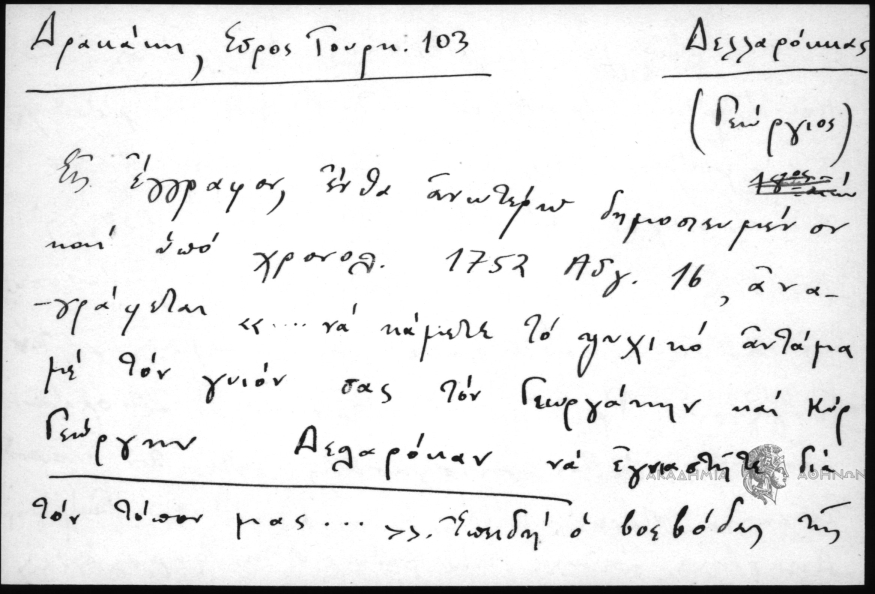 Δρακάκη, Σύρος Τουρκ. 103
Δελλαρόκκας
(Γεώργιος)
Εἰς ἔγγραφον, ἔνθα ἀνωτέρω δημοσιευμένον
καί ὑπό χρονολ. 1752 Αὐγ. 16, ἀνα-
-γράφεται «....νά κάμετε τό ψυχικό ἀντάμα
μέ τόν γυιόν σας τόν Γεωργάκην καί Κύρ
Γεώργην Δελαρόκαν νά ἐγνιαστῆτε διά
τόν τόπον μας... ». Ἐπειδή ὁ βοεβόδας τῆς
ΑΚΑΔΗΜΙΑ ΑΘΗΝΩΝ